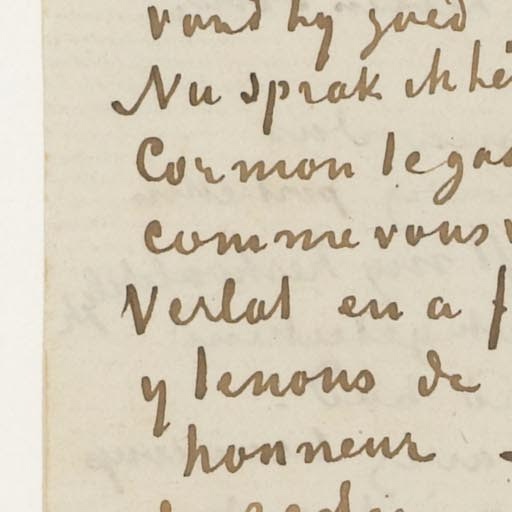 vond hy goed
Nu sprak ik
Cormon
comme vous
Verlat en a
y tenons de
honneur